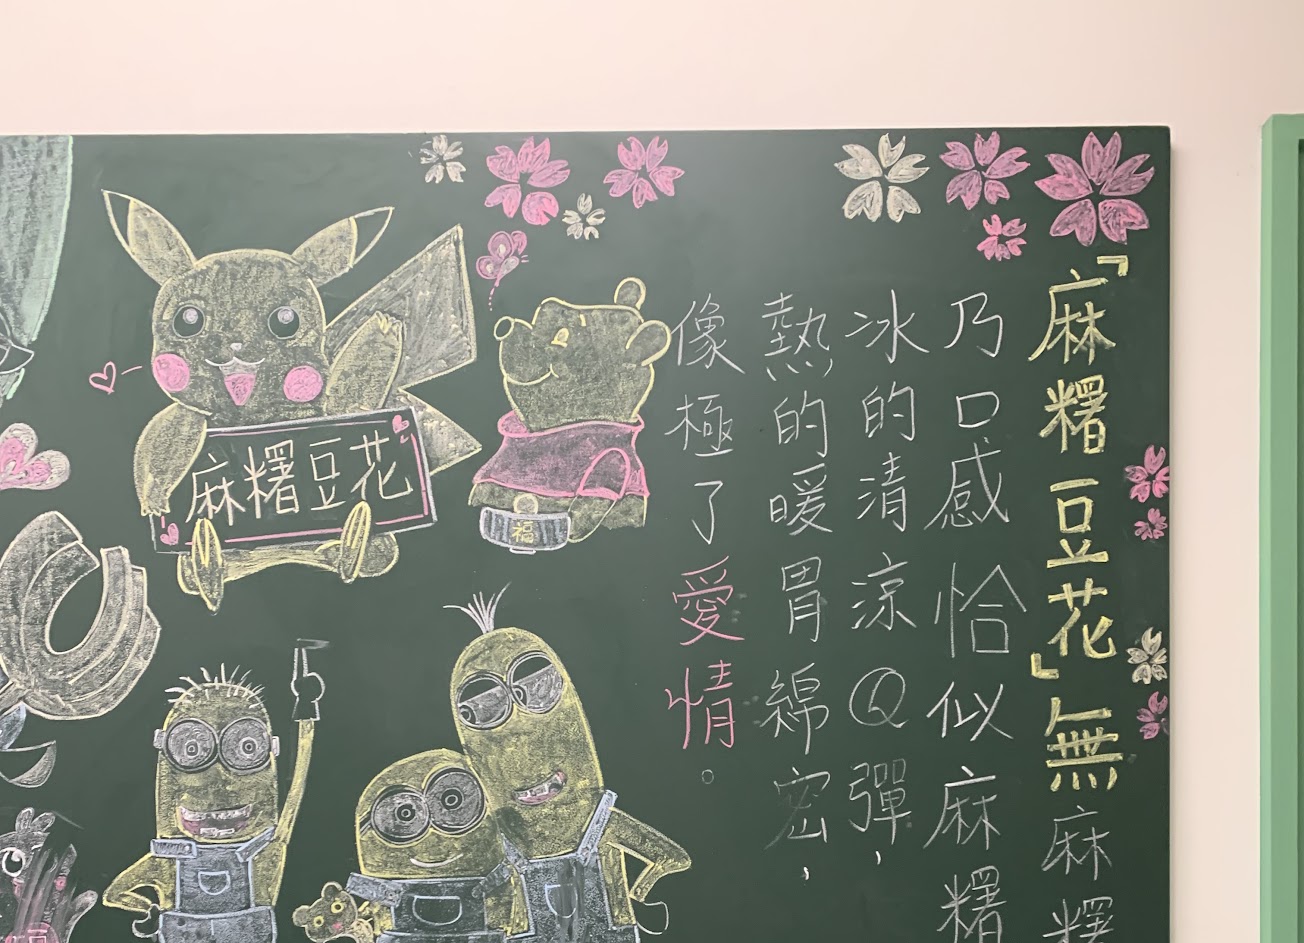 「麻糬豆花」無麻糬
乃口感恰似麻糬
冰的清涼Q彈，
熱的暖胃綿密，
像極了愛情。
麻糬豆花
福